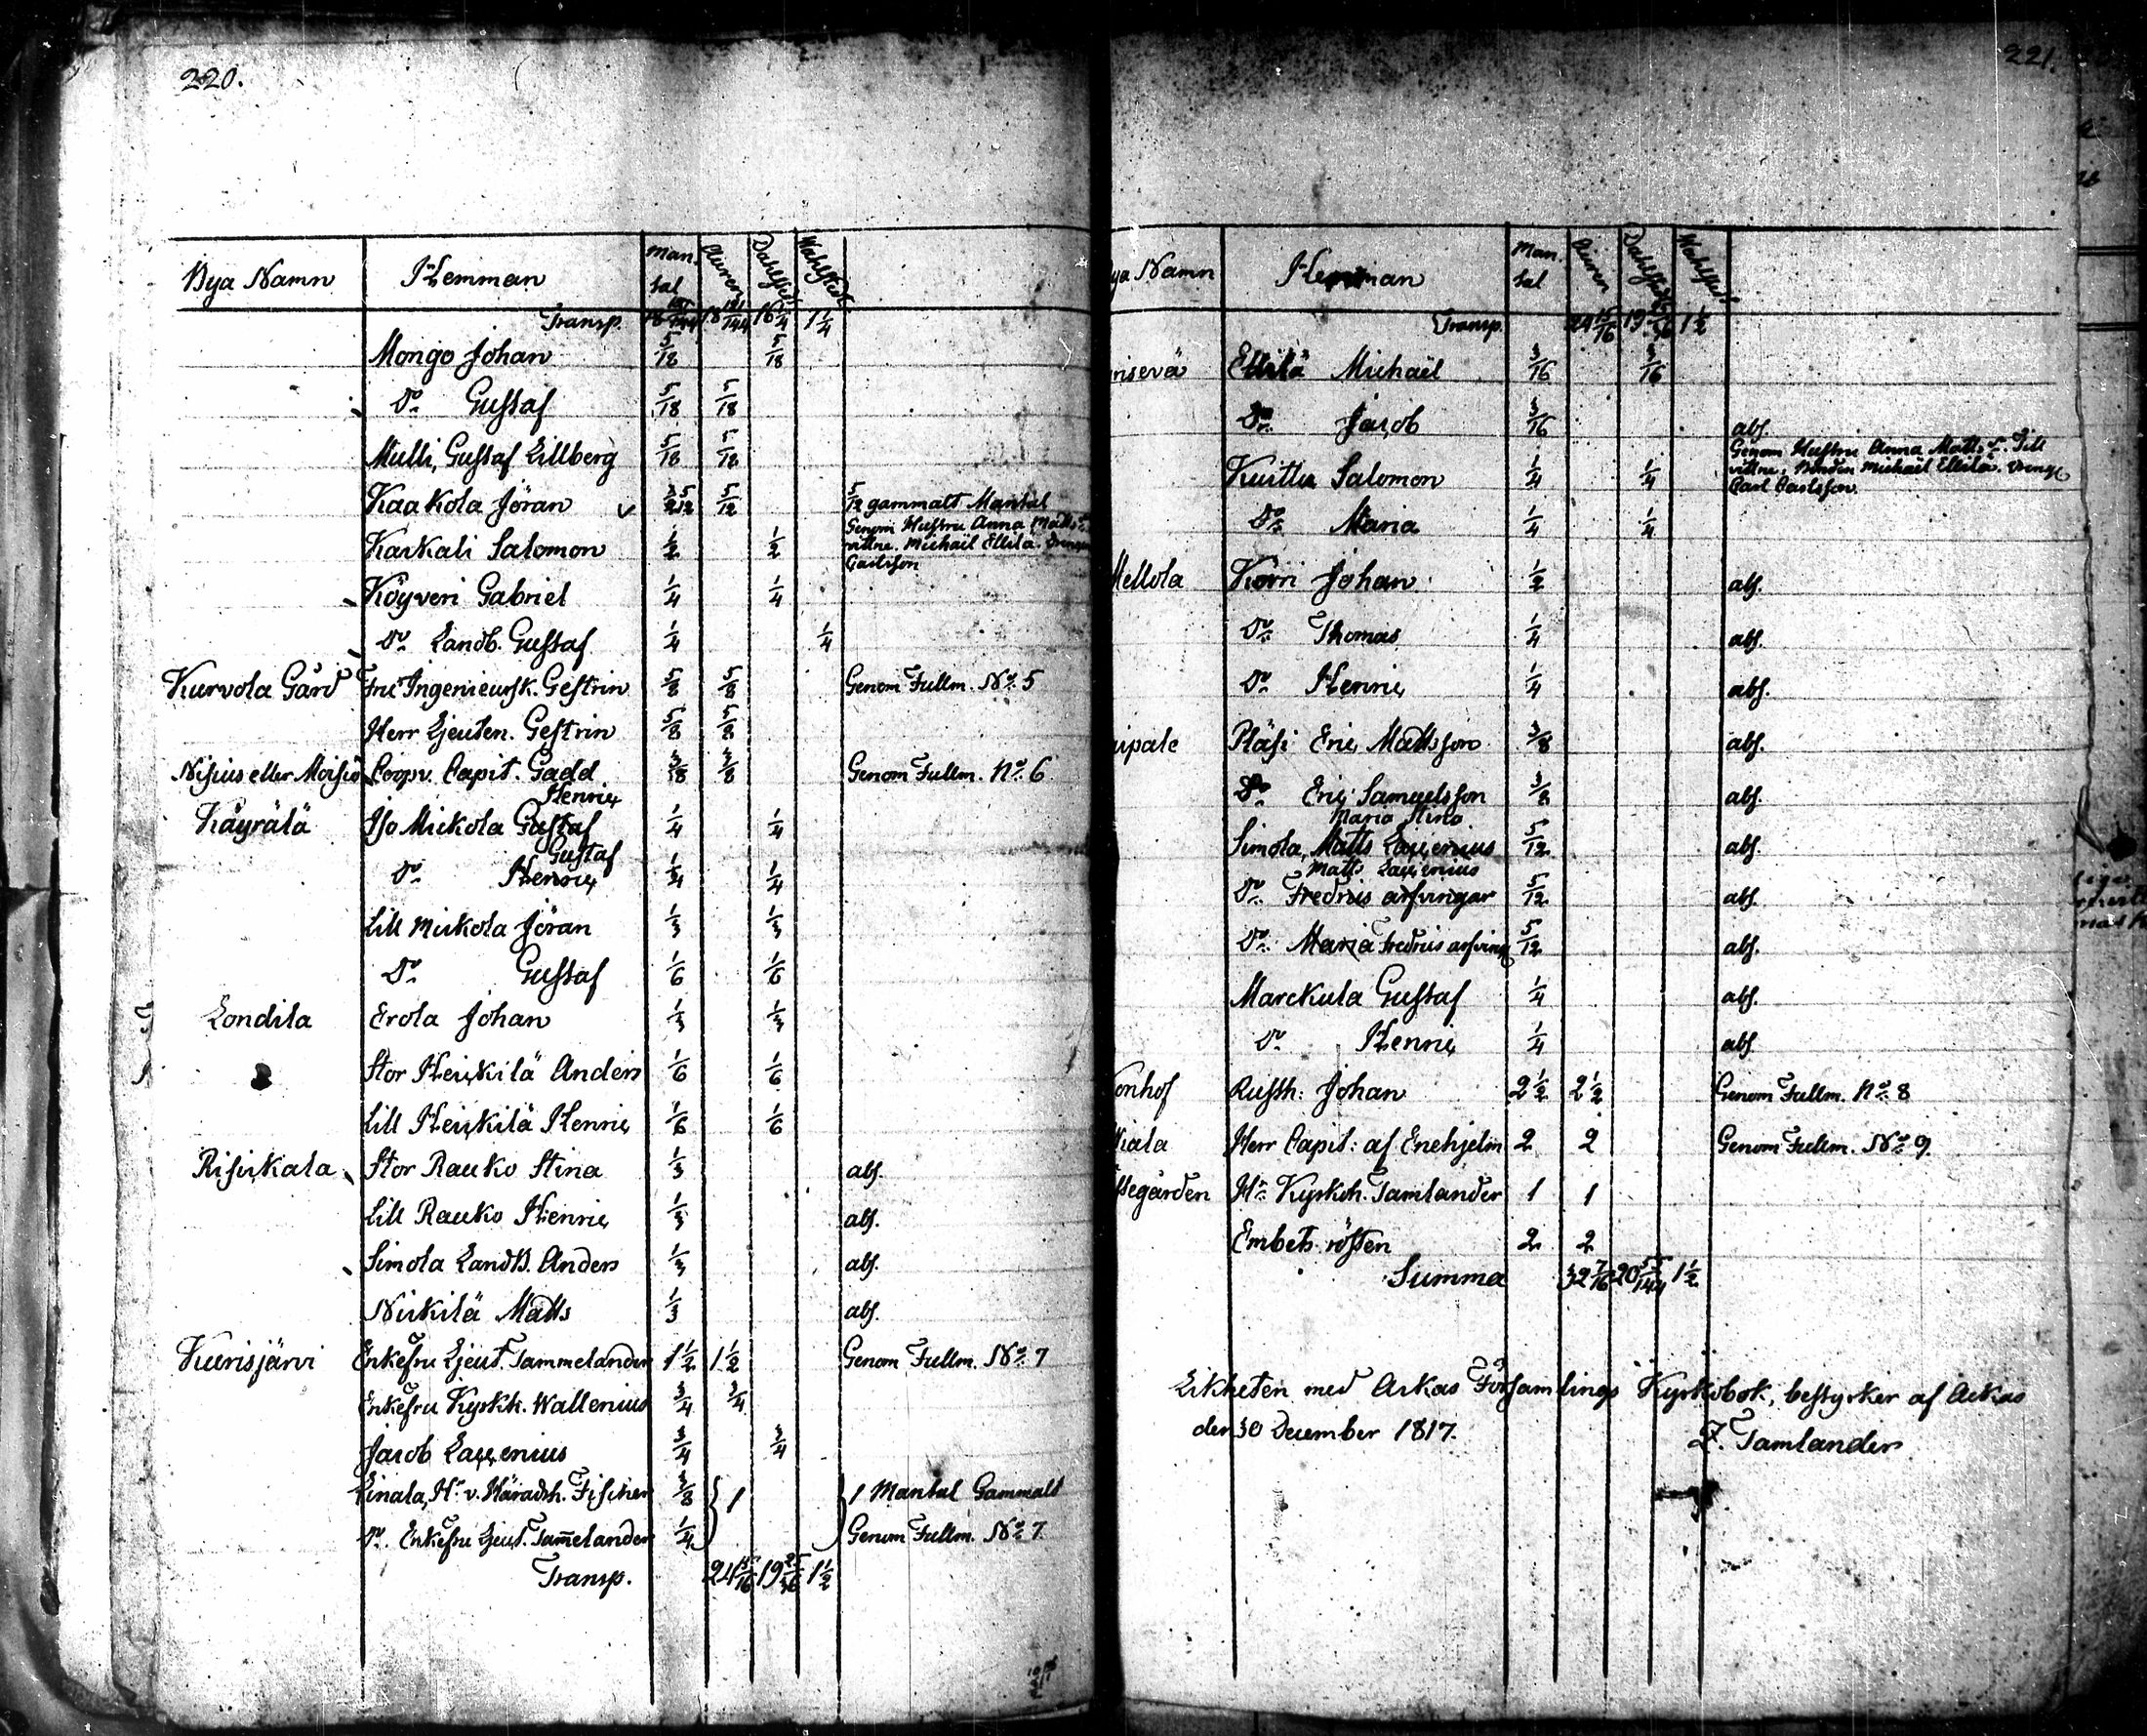 220.
Bya Namn Hemman Man. tal Auren Dahlstedt Wahlstedt
Transp. 18 1/4 1 1/4
Mongo Johan 5/18 5/18
Do Gustaf 5/18 5/18
Mulli, Gustaf Lillberg 5/18 5/18
Kaakola Jöran 5/12 5/12 gammalt Mantal
Karkali Salomon 1/2 1/2 Genom Hustru Anna Matts dr vittne. Michaël Ellilä. Drengen Carlsson
Köyveri Gabriel 1/4 1/4
Do Landb. Gustaf 1/4 1/4
Kurvola Gård Fru Ingenieursk. Gestrin 5/8 5/8 Genom Fullm. No 5
Herr Lieuten. Gestrin 5/8 5/8
Nisius eller Moisio Coopv. Capit. Gadd 3/8 3/8 Genom Fullm. No 6
Henric
Käyrälä Iso Mickola Gustaf 1/4 1/4
Gustaf
Do Henric 1/4 1/4
Lill Mickola Jöran 1/3 1/3
Do Gustaf 1/6 1/6
Londila Erola Johan 1/3 1/3
Stor Heickilä Anders 1/6 1/6
Lill Heickilä Henric 1/6 1/6
Risickala Stor Rauko Stina 1/3 abs.
Lill Rauko Henric 1/3 abs.
Simola Landb. Anders 1/3 abs.
Nickilä Matts 1/3 abs.
Kurisjärvi Enkefru Lieut. Tammelander 1 1/2 1 1/2 Genom Fullm. No 7
Enkefru Kyrkh. Wallenius 3/4 3/4
Jacob Laccenius 3/4 3/4
Linala, Hr v. Häradsh. Fischer 3/8 } 1 } 1 Mantal Gammalt
Do Enkefru Lieut. Tam̄elander 1/4 Genom Fullm. No 7
Transp. 24 15/16 19 25/36 1 1/2
221.
ya Namn Hemman Man tal Auren Dahlstedt Wahlstedt
Transp. 24 15/16 19 25/36 1 1/2
risevä Ellilä Michaël 3/16 3/16
Do Jacob 3/16 abs.
Kuittu Salomon 1/4 1/4 Genom Hustru Anna Matts dr. Till vittne, Bonden Michaël Ellilä. Dreng Carl Carlsson.
Do Maria 1/4 1/4
Mellola Korri Johan 1/2 abs.
Do Thomas 1/4 abs.
Do Henric 1/4 abs.
uipale Pläsi Eric Mattsson 3/8 abs.
Do Eric Samuelsson 3/8 abs.
Maria Stina
Simola, Matts Laccenius 5/12 abs.
Matts Laccenius
Do Fredrics arfvingar 5/12 abs.
Do Maria Fredrics arfving 5/12 abs.
Marckula Gustaf 1/4 abs.
Do Henric 1/4 abs.
onhof Rusth: Johan 2 1/2 2 1/2 Genom Fullm. No 8
iala Herr Capit: af Enehjelm 2 2 Genom Fullm. No 9
segården Hr Kyrkoh. Tamlander 1 1
Embets rösten 2 2
Summa 32 7/16 20 1 1/2
Likheten med Ackas Församlings Kyrkobok, bestyrker af Ackas
den 30 December 1817.
Z. Tamlander